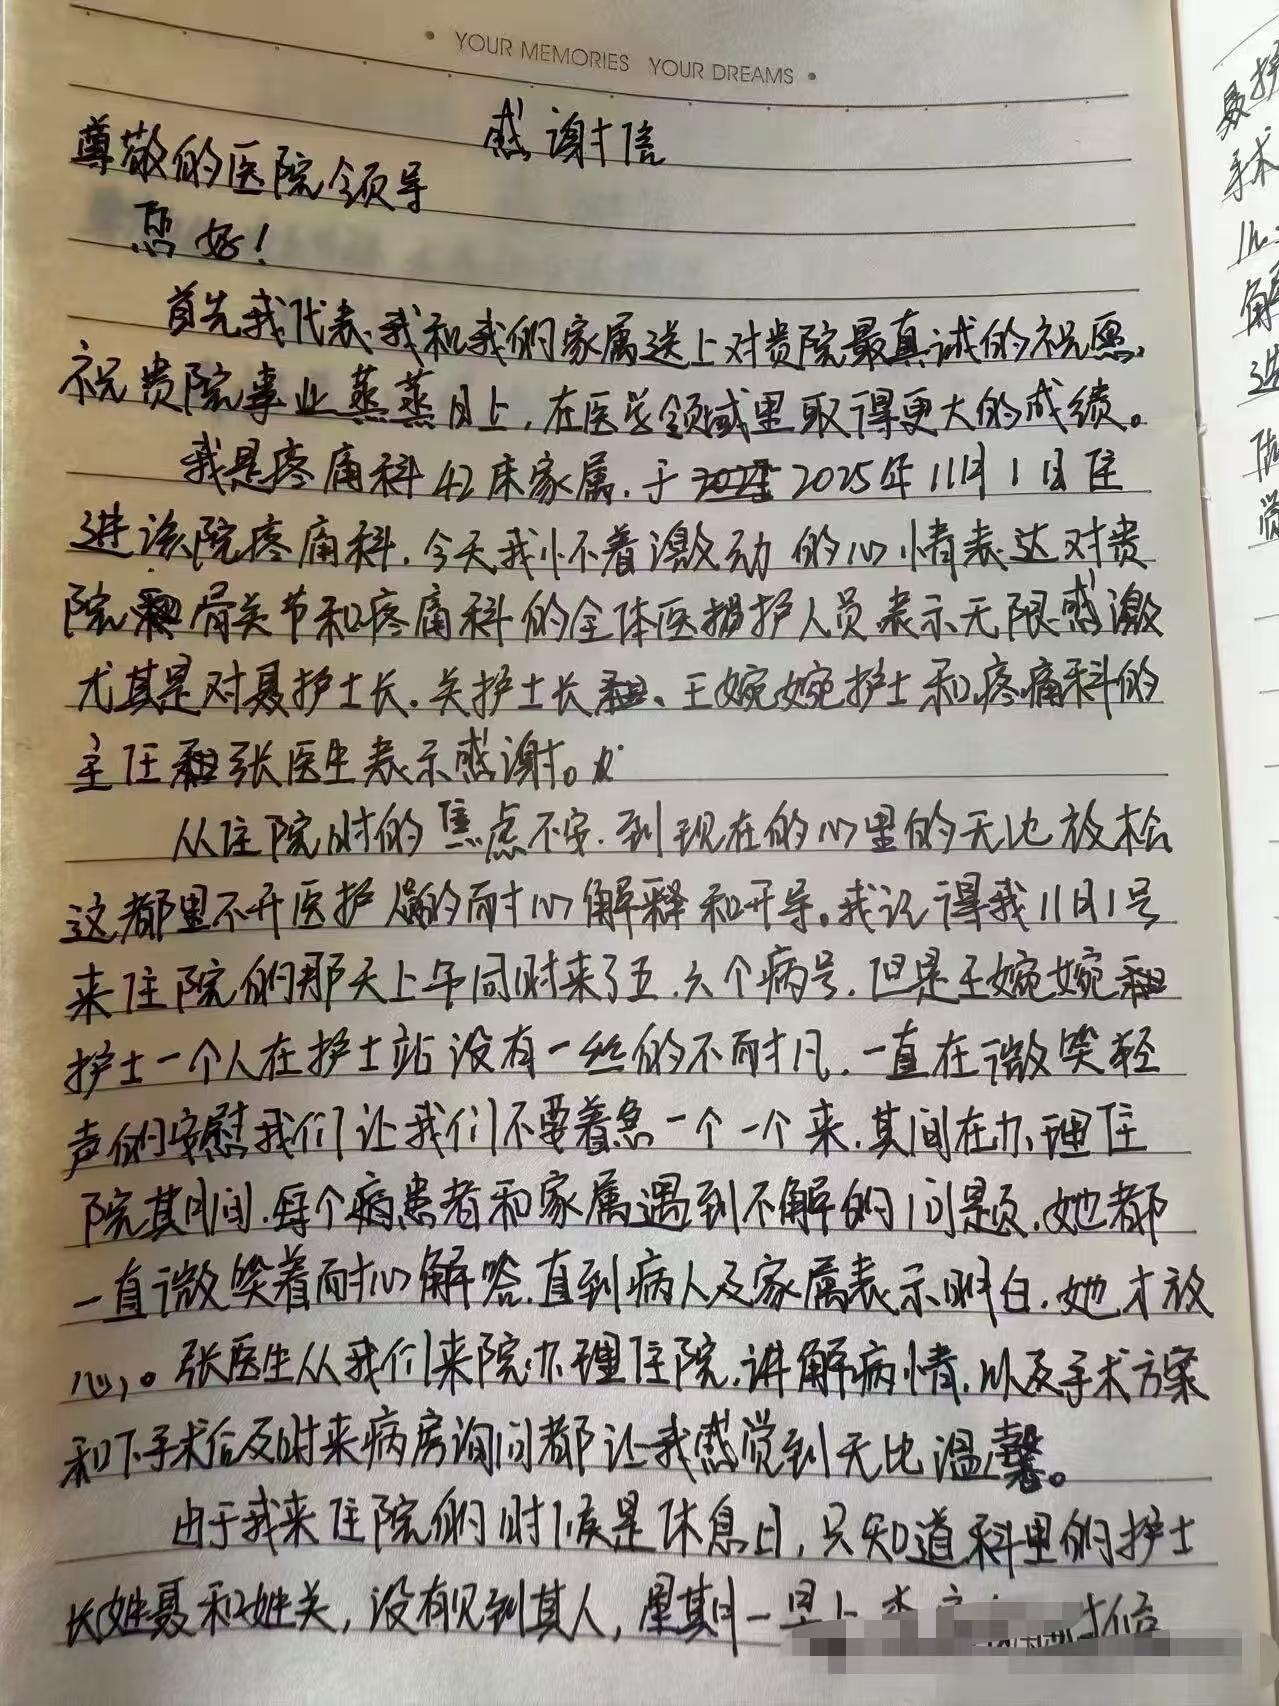 YOUR MEMORIES YOUR DREAMS
感谢信
尊敬的医院领导
您好!
首先我代表我和我的家属送上对贵院最真诚的祝愿,
祝贵院事业蒸蒸日上,在医学领域里取得更大的成绩。
我是疼痛科42床家属.于2025年11月1日住
进该院疼痛科.今天我怀着激动的心情表达对贵
院骨关节和疼痛科的全体医护人员表示无限感激
尤其是对聂护士长.关护士长、王婉婉护士和疼痛科的
主任张医生表示感谢。
从住院时的焦虑不安.到现在的心里的无比放松
这都里不开医护人员的耐心解释和开导。我记得我11月1号
来住院的那天上午同时来了五.六个病号.但是王婉婉
护士一个人在护士站没有一丝的不耐凡.一直在微笑轻
声的安慰我们让我们不要着急一个一个来.其间在办理住
院其间.每个病患者和家属遇到不解的问题.她都
一直微笑着耐心解答.直到病人及家属表示明白.她才放
心,。张医生从我们来院办理住院.讲解病情.以及手术方案
和下手术后及时来病房询问都让我感觉到无比温馨。
由于我来住院的时候是休息日,只知道科里的护士
长姓聂和姓关,没有见到其人,星期一早上
聂护
手术
解
进
觉